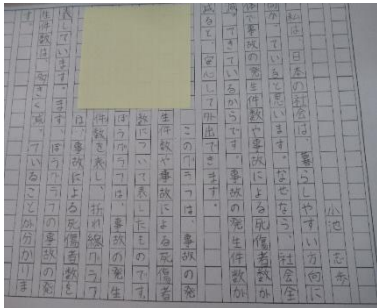 小池 志歩
私は、日本の社会は、暮らしやすい方向に
向かっていると思います。なぜなら、社会全
体で事故の発生件数や事故による死傷者数が
減ってきているからです。事故の発生件数が
して外出できます。
このグラフは、事故の発
生件数や事故による死傷者
数について表したものです。
ぼうグラフは、事故の発生
件数を表し、折れ線グラフ
は、事故による死傷者数を
表しています。まず、ぼうグラフの事故の発
生件数は、大きく減っていることが分かりま
す。